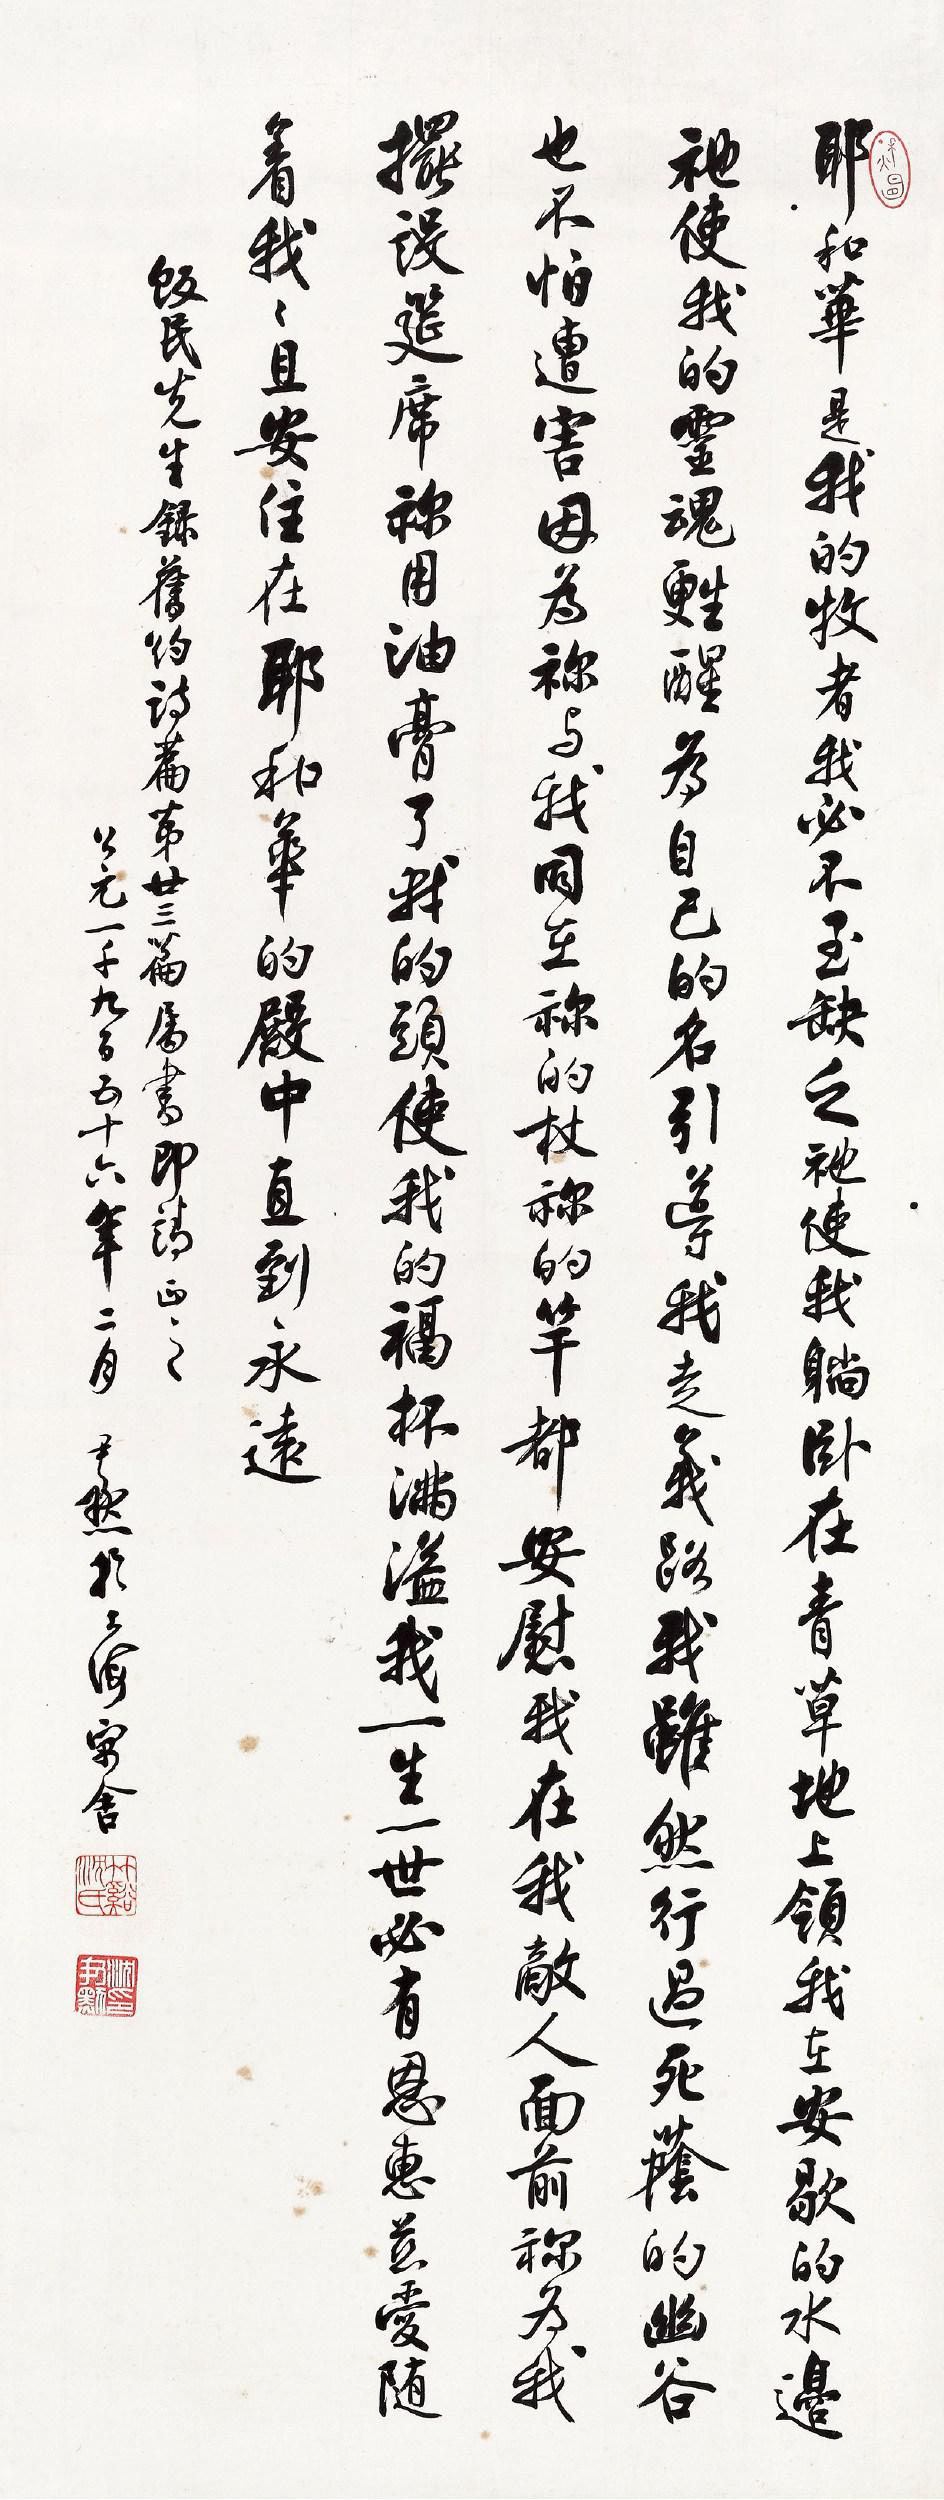 耶和華是我的牧者我必不至缺乏祂使我躺卧在青草地上領我在安歇的水邊
祂使我的靈魂甦醒為自己的名引導我走義路我雖然行過死蔭的幽谷
也不怕遭害因為祢与我同在祢的杖祢的竿都安慰我在我敵人面前祢為我
擺設筵席祢用油膏了我的頭使我的福杯滿溢我一生一世必有恩惠慈愛隨
着我我且安住在耶和華的殿中直到永遠
飯民先生錄舊約詩篇第廿三篇屬書即請正之
公元一千九百五十六年二月 尹默於上海寓舍
竹谿沈氏
沈尹默印